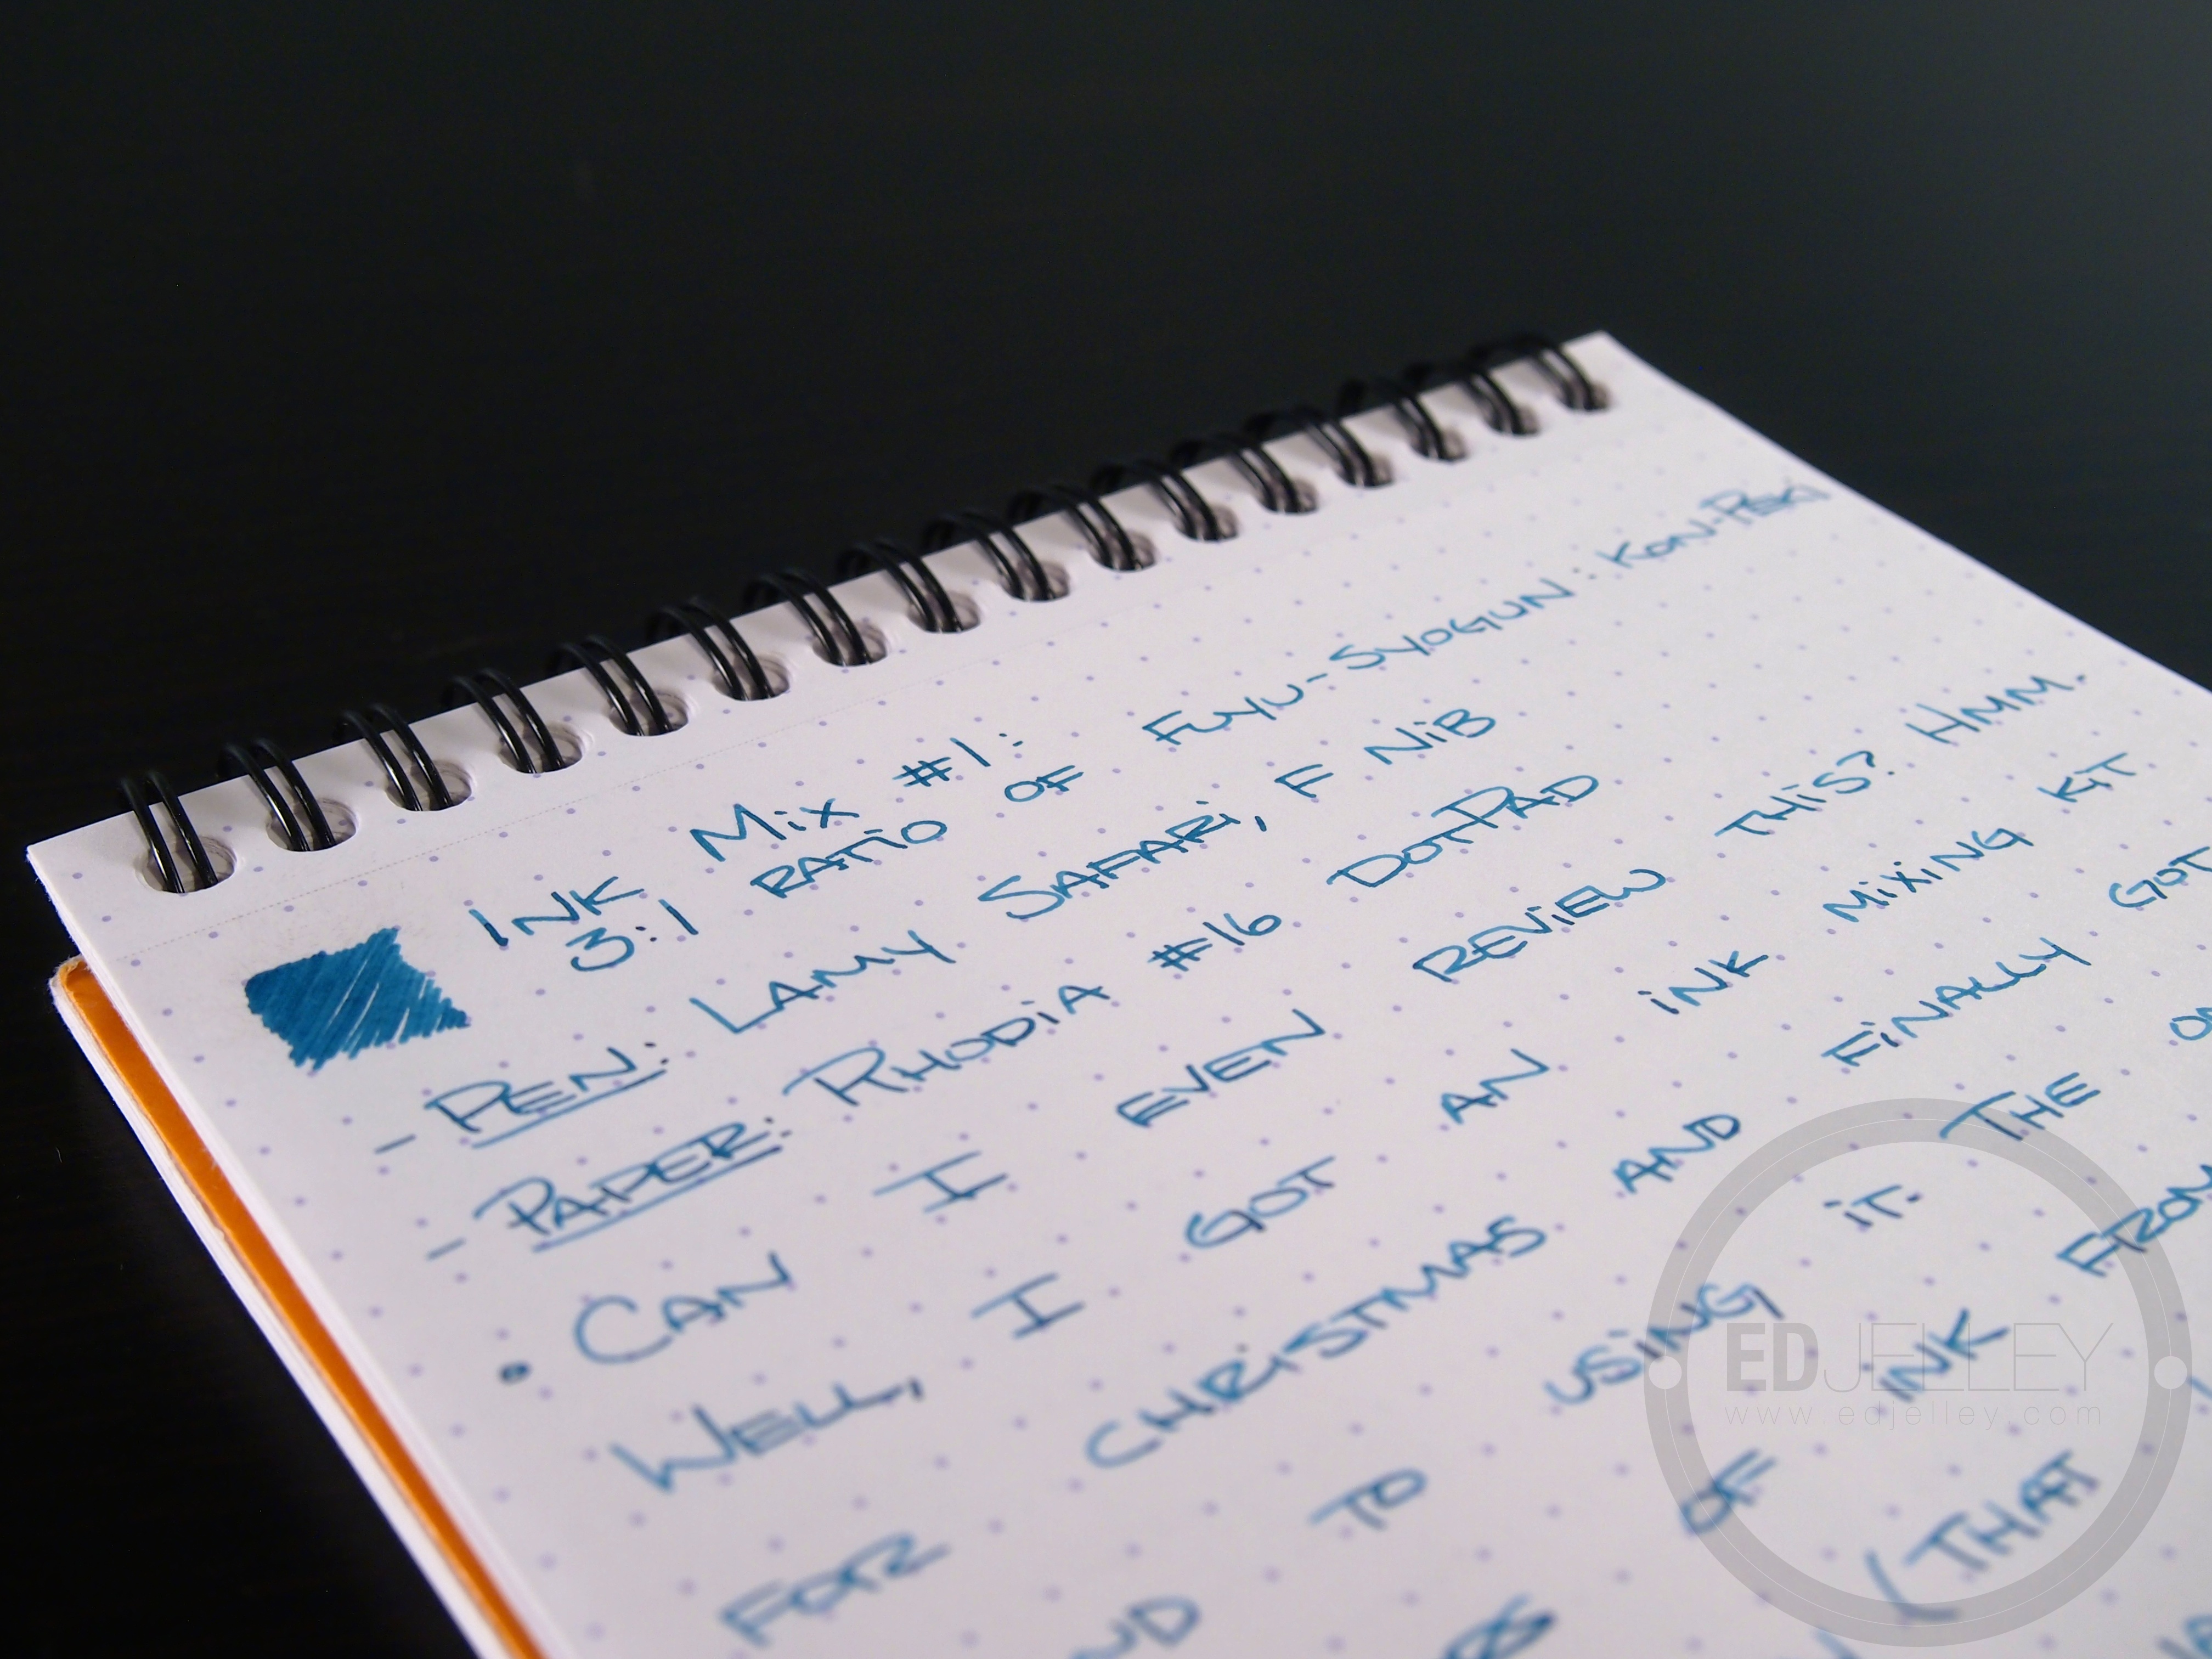 INK MIX #1:
3:1 RATIO OF FUYU-SYOGUN : KON-PEKI
- PEN: LAMY SAFARI, F NIB
- PAPER: RHODIA #16 DOTPAD
• CAN I EVEN REVIEW THIS? HMM.
WELL, I GOT AN INK MIXING KIT
FOR CHRISTMAS AND FINALLY GOT
TO USING IT. THE
OF INK FROM
(THAT
EDJELLEY
www.edjelley.com